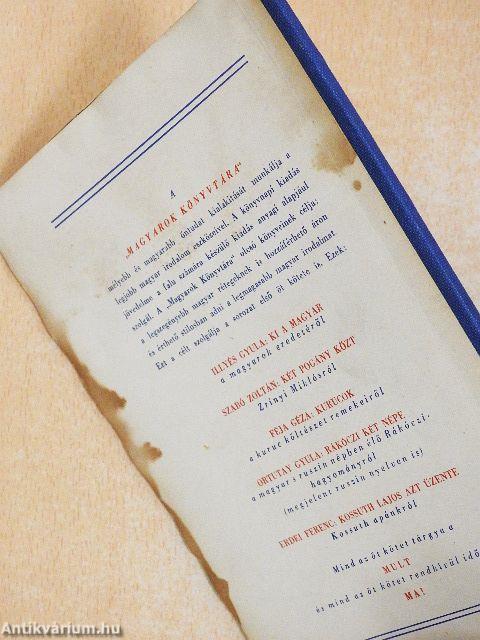 A
„MAGYAROK KÖNYVTÁRA”
mélyebb és magyarabb öntudat kialakítását munkálja a
legjobb magyar irodalom eszközeivel. A könyvnapi kiadás
jövedelme a falu számára készülő kiadás anyagi alapjául
szolgál. A „Magyarok Könyvtára” olcsó könyveinek célja:
a legszegényebb magyar rétegeknek is hozzáférhető áron
és érthető stílusban adni a legmagasabb magyar irodalmat
Ezt a célt szolgálja a sorozat első öt kötete is. Ezek:
ILLYÉS GYULA: KI A MAGYAR
a magyarok eredetéről
SZABÓ ZOLTÁN: KÉT POGÁNY KÖZT
Zrinyi Miklósról
FÉJA GÉZA: KURUCOK
a kuruc költészet remekeiről
ORTUTAY GYULA: RÁKÓCZI KÉT NÉPE
a magyar s ruszin népben élő Rákóczi-
hagyományról
(megjelent ruszin nyelven is)
ERDEI FERENC: KOSSUTH LAJOS AZT ÜZENTE
Kossuth apánkról
Mind az öt kötet tárgya a
MULT
és mind az öt kötet rendkívül idő
MA!
Antikvárium.hu